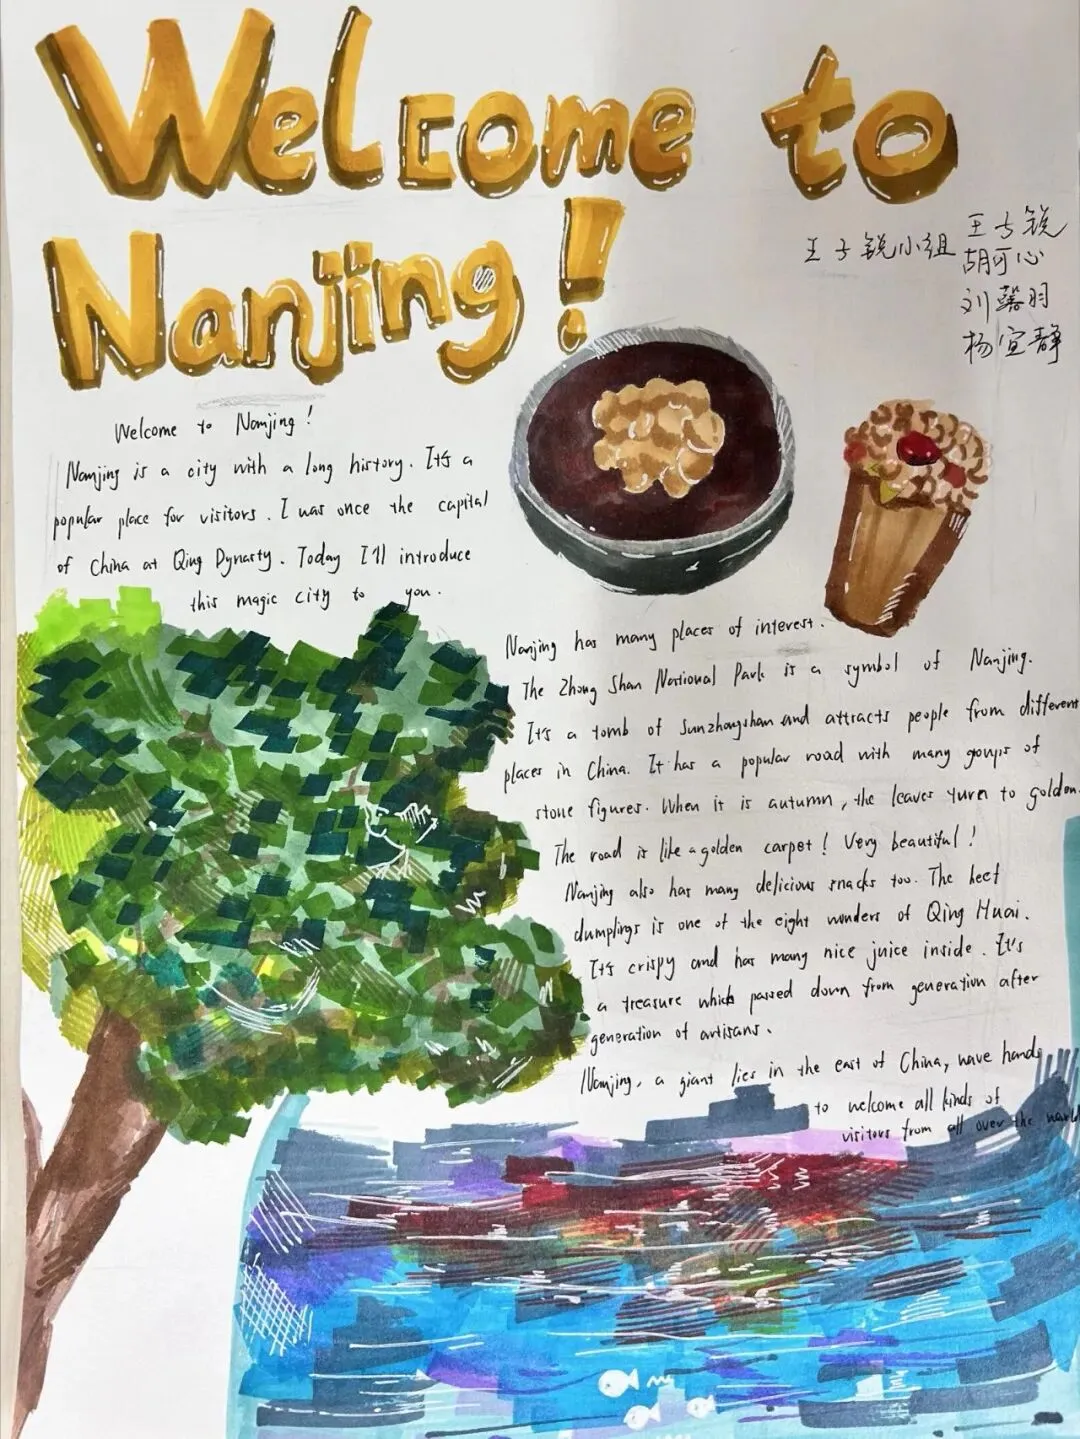 Welcome to
Nanjing!
王子锐小组
王子锐
胡可心
刘馨羽
杨宜静
Welcome to Nanjing!
Nanjing is a city with a long history. It's a
popular place for visitors. I was once the capital
of China at Qing Dynasty. Today I'll introduce
this magic city to you.
Nanjing has many places of interest.
The Zhong Shan National Park is a symbol of Nanjing.
It's a tomb of Sunzhongshan and attracts people from different
places in China. It has a popular road with many goups of
stone figures. When it is autumn, the leaves turen to golden.
The road is like a golden carpet! Very beautiful!
Nanjing also has many delicious snacks too. The beef
dumplings is one of the eight wonders of Qing Huai.
It's crispy and has many nice juice inside. It's
a treasure which passed down from generation after
generation of artisans.
Nanjing, a giant lies in the east of China, wave hands
to welcome all kinds of
visitors from all over the world